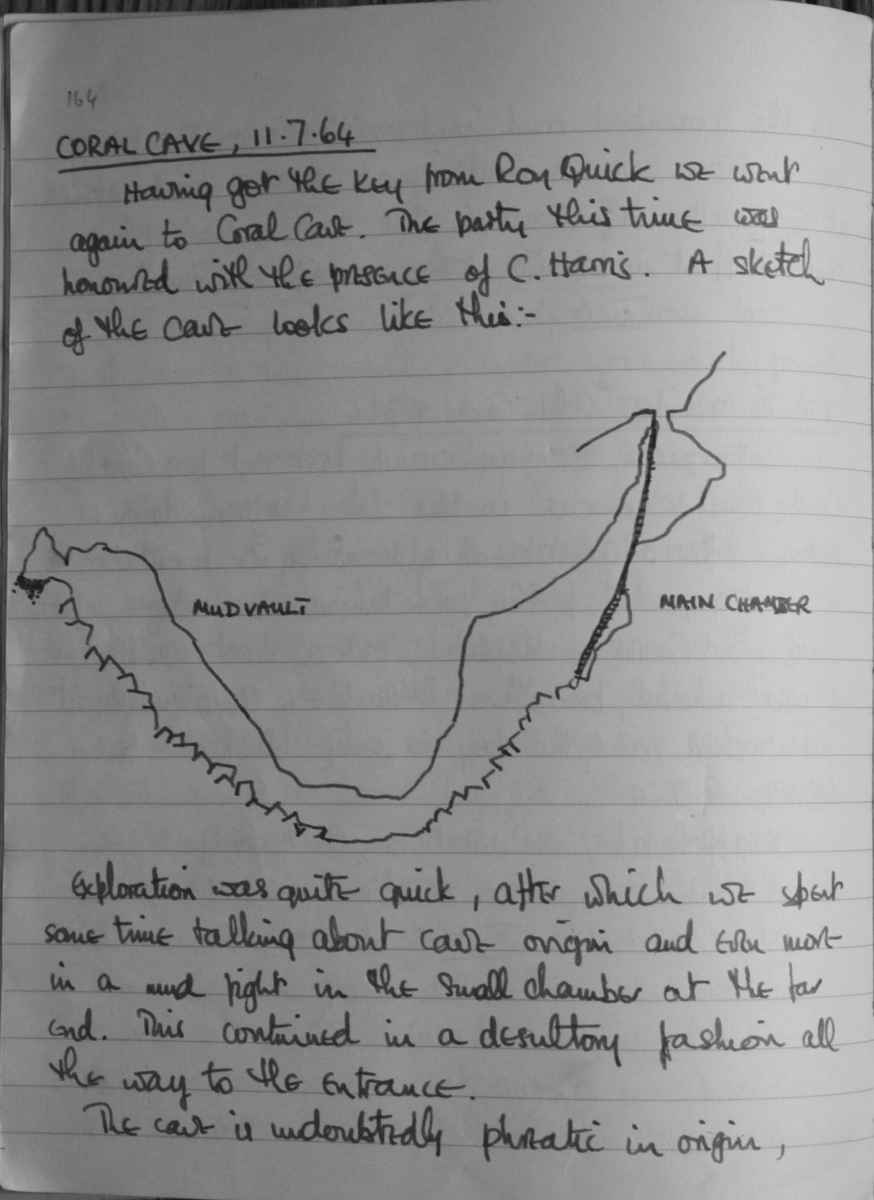 164
CORAL CAVE, 11.7.64
Having got the key from Roy Quick we went
again to Coral Cave. The party this time was
honoured with the presence of C. Harris. A sketch
of the cave looks like this:-
MUD VAULT
MAIN CHAMBER
Exploration was quite quick, after which we spent
some time talking about cave origin and even more
in a mud fight in the small chamber at the far
end. This continued in a desultory fashion all
the way to the entrance.
The cave is undoubtedly phreatic in origin,